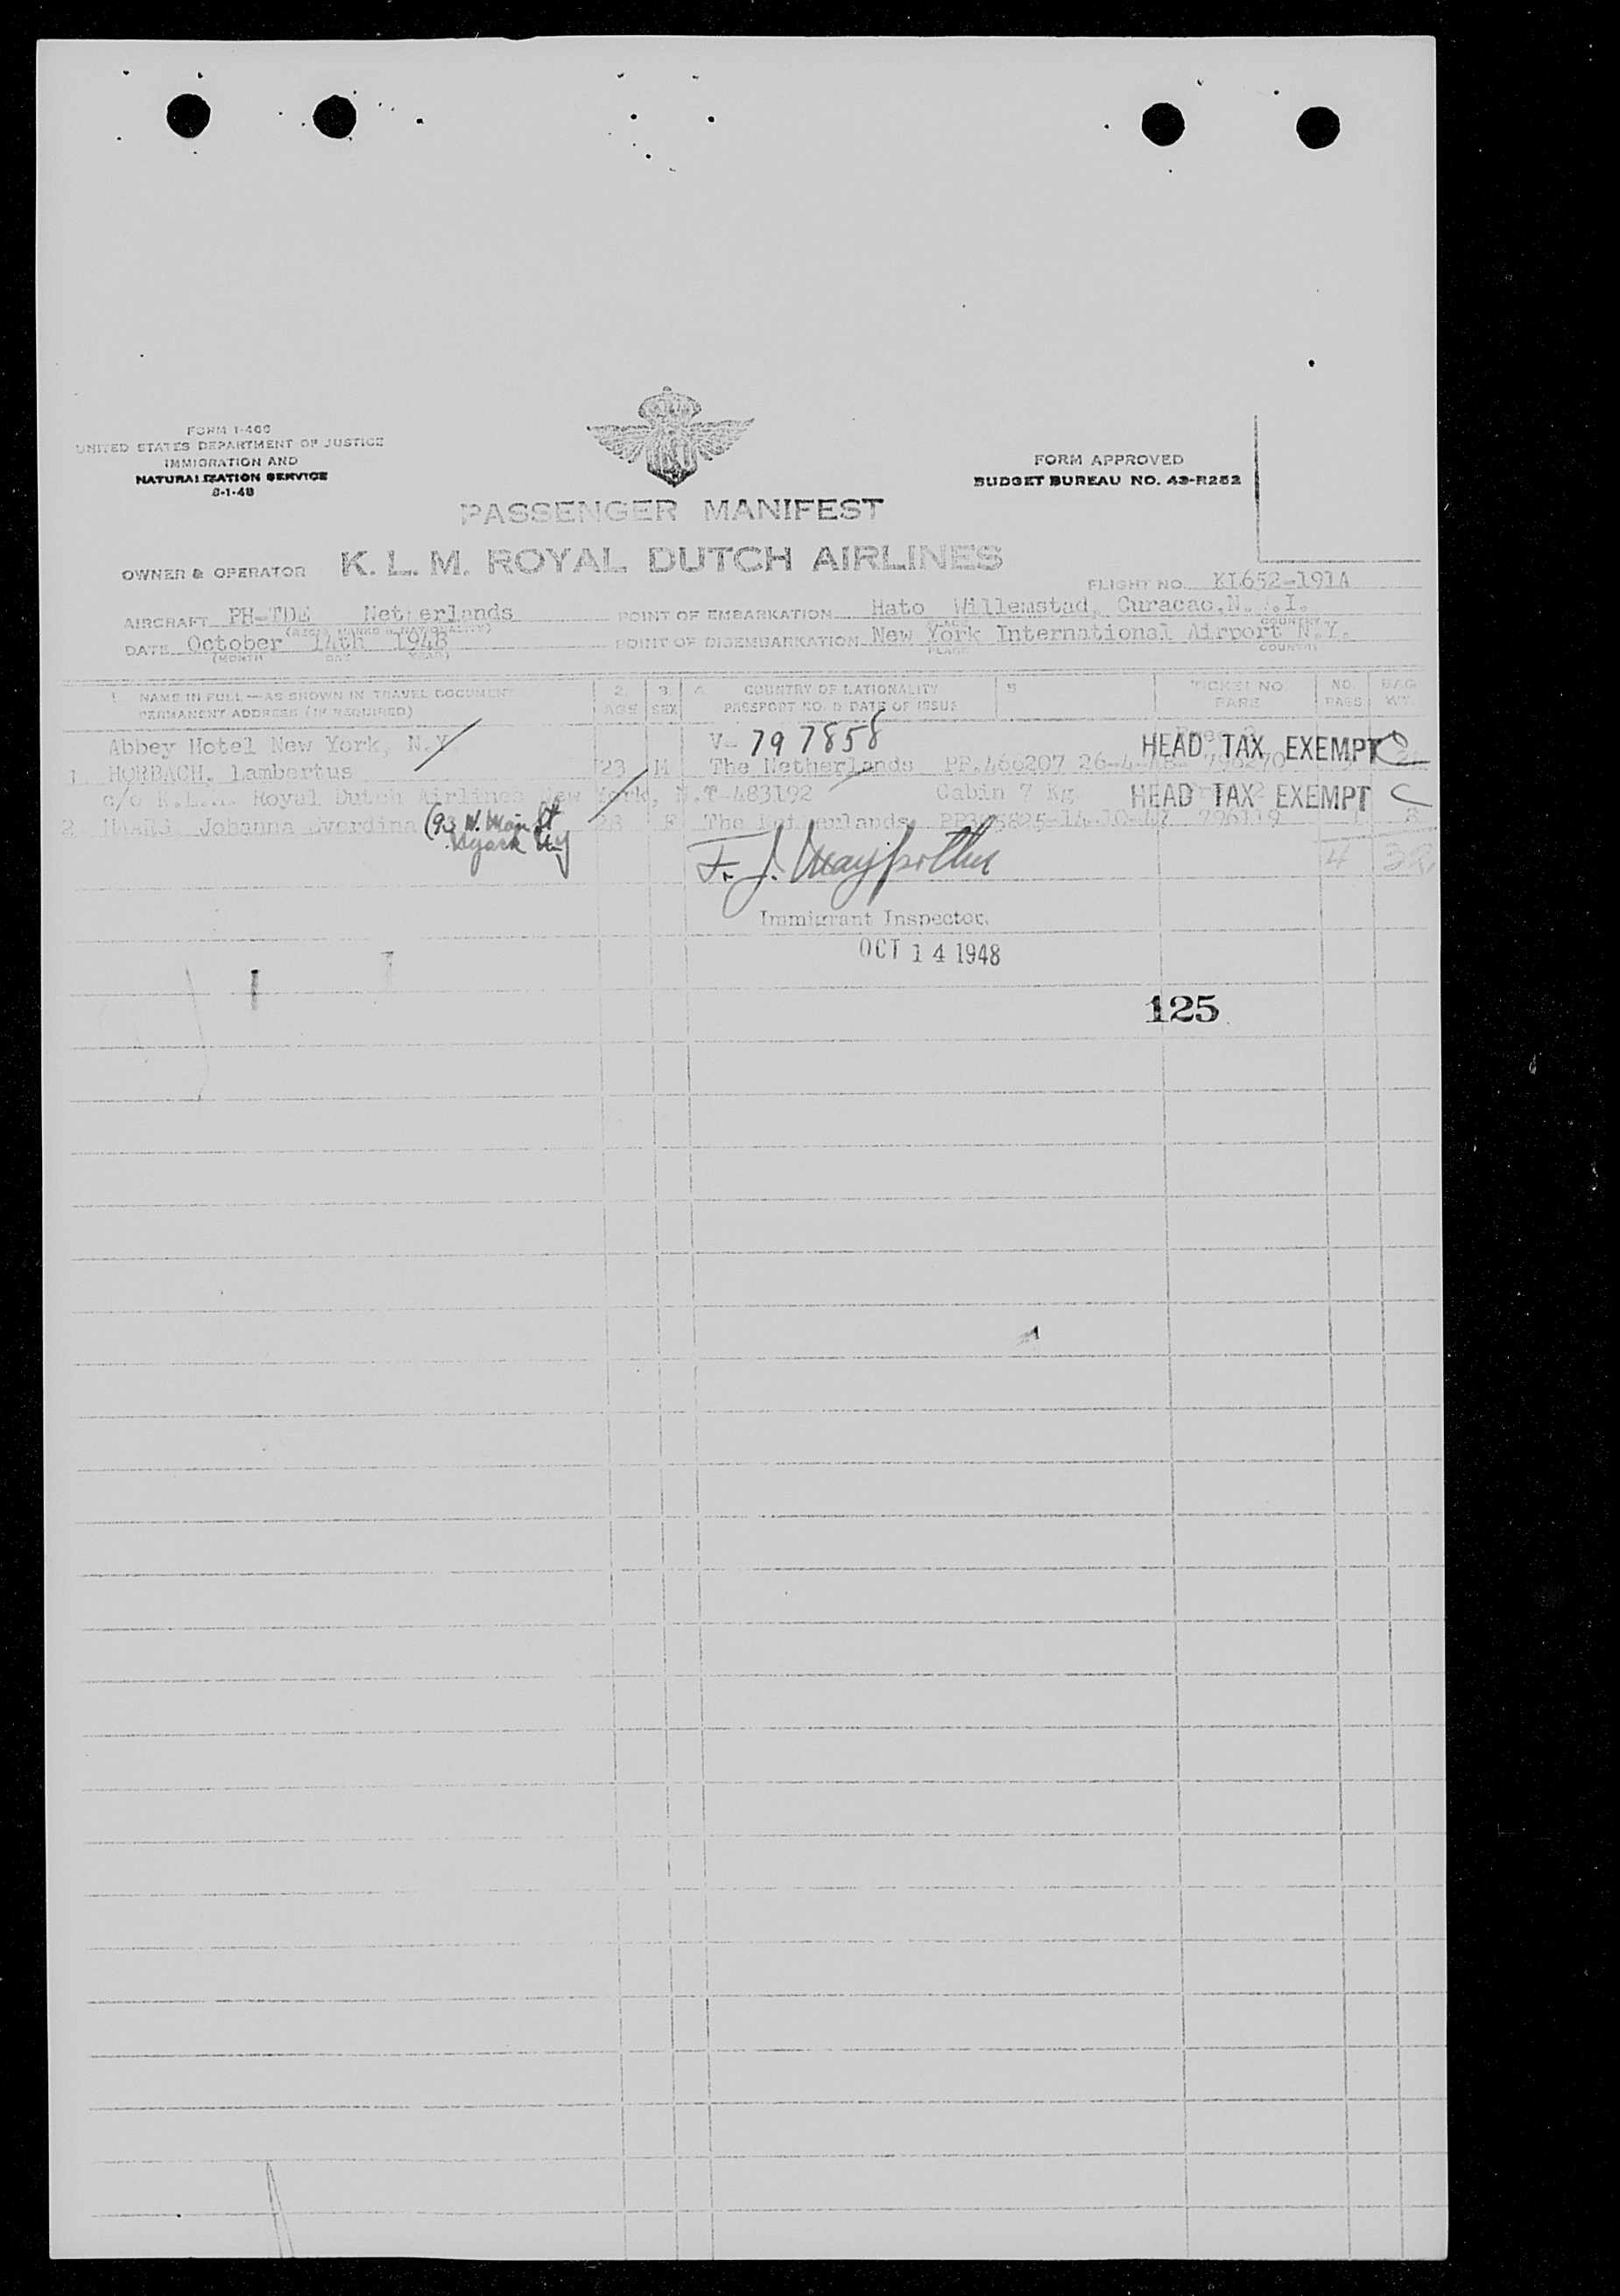 FORM I-466
UNITED STATES DEPARTMENT OF JUSTICE
IMMIGRATION AND
NATURALIZATION SERVICE
8-1-48
FORM APPROVED
BUDGET BUREAU NO. 43-R252
PASSENGER MANIFEST
OWNER & OPERATOR K. L. M. ROYAL DUTCH AIRLINES
FLIGHT NO. KL652-191A
AIRCRAFT PH-TDE Netherlands POINT OF EMBARKATION Hato Willemstad, Curacao, N.W.I.
DATE October 14th 1948 POINT OF DISEMBARKATION New York International Airport N.Y.
(MONTH DAY YEAR) PLACE COUNTRY
1. NAME IN FULL — AS SHOWN IN TRAVEL DOCUMENT 2. 3. 4. COUNTRY OF NATIONALITY 5 TICKET NO NO. BAG
PERMANENT ADDRESS (IF REQUIRED) AGE SEX PASSPORT NO. & DATE OF ISSUE FARE PASS WT.
Abbey Hotel New York, N.Y. V- 797858 HEAD TAX EXEMPT
1. HORBACH, Lambertus 23 M The Netherlands PP.466207 26-4-48 796270
c/o K.L.M. Royal Dutch Airlines New York, N.Y-483192 Cabin 7 Kg. HEAD TAX EXEMPT C
2 Johanna Everdina (93 N. Main St 28 F The Netherlands 796119 1 8
Nyack NY
4 32
Immigrant Inspector.
OCT 14 1948
125